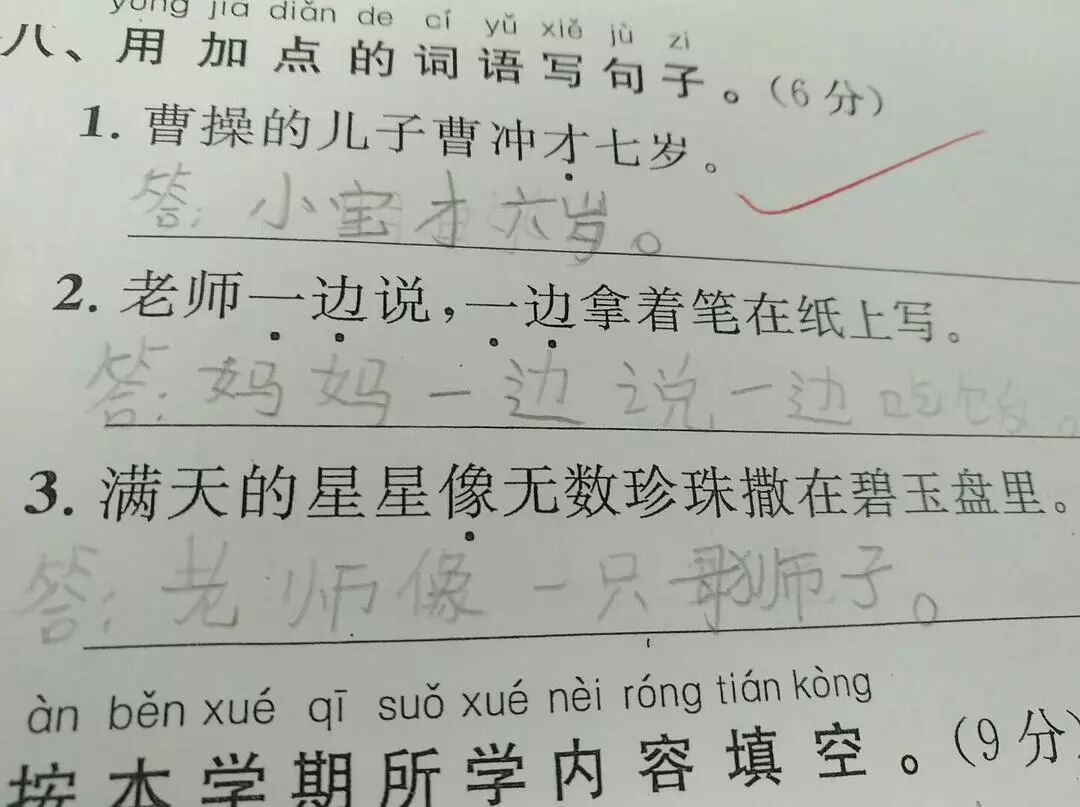 yòng jiā diǎn de cí yǔ xiě jù zi
八、用加点的词语写句子。(6分)
1. 曹操的儿子曹冲才七岁。
答:小宝才六岁。
2. 老师一边说,一边拿着笔在纸上写。
答:妈妈一边说一边吃饭。
3. 满天的星星像无数珍珠撒在碧玉盘里。
答:老师像一只师子。
àn běn xué qī suǒ xué nèi róng tián kòng
按本学期所学内容填空。(9分)